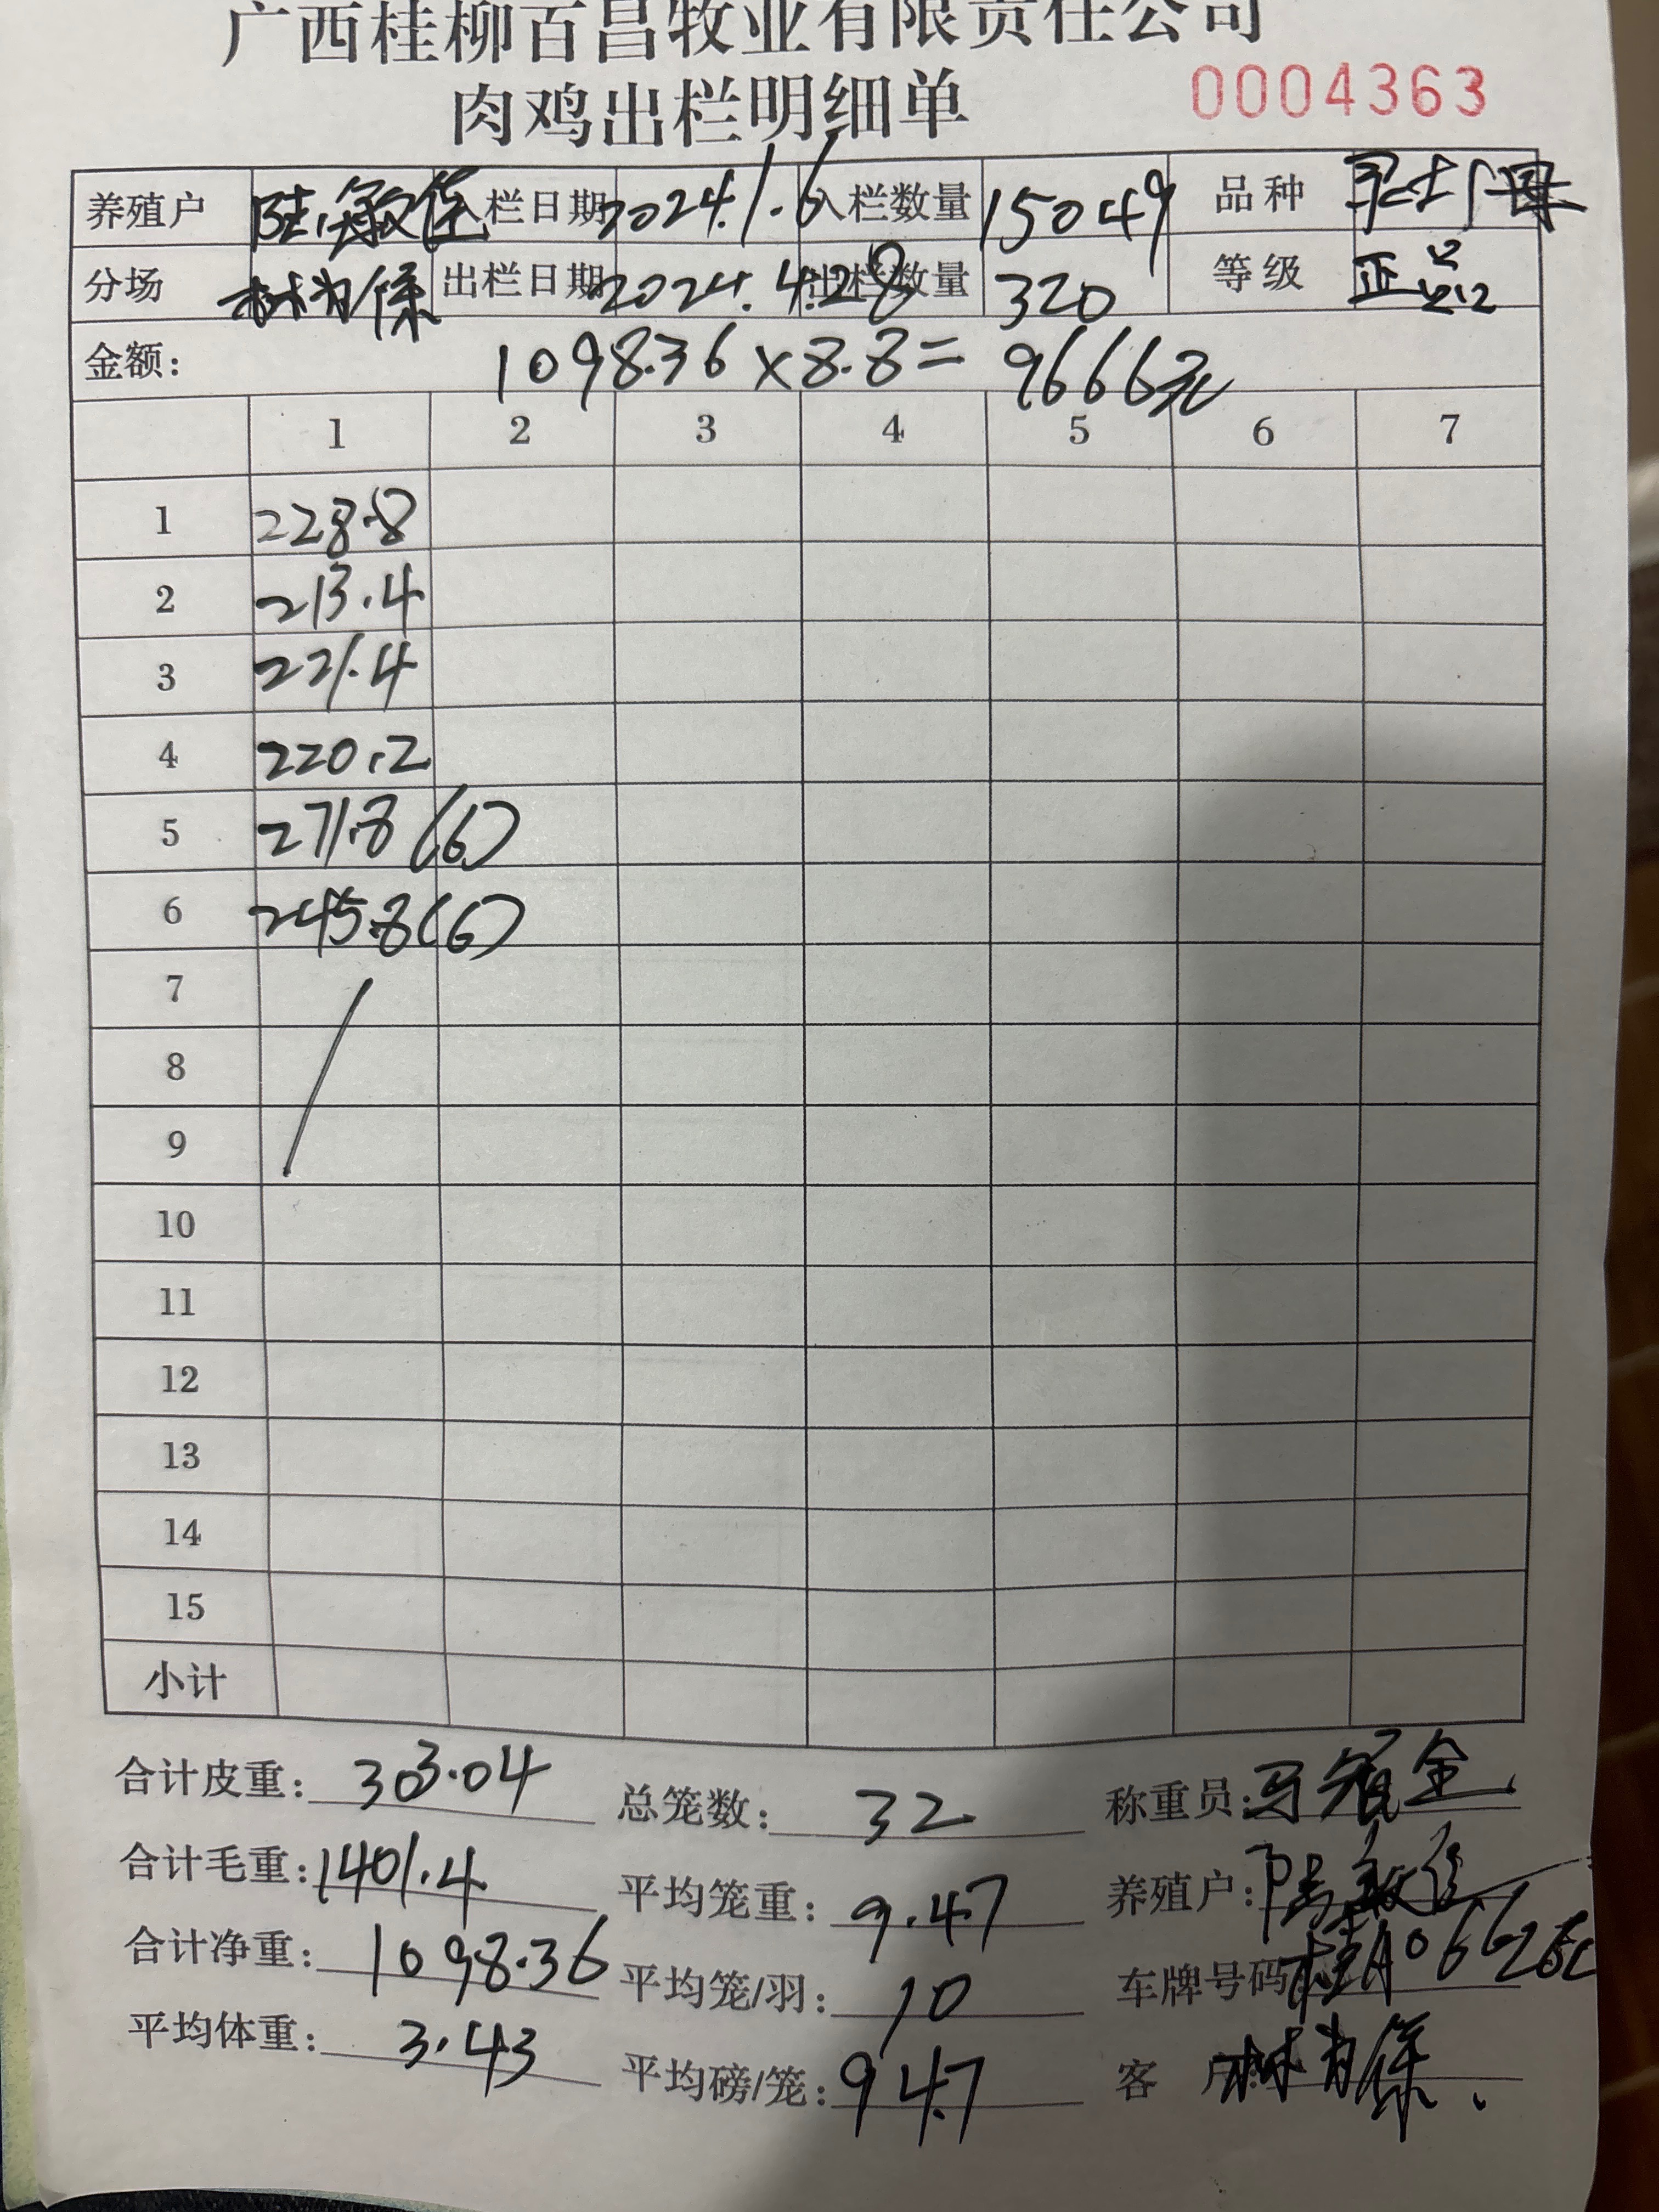 广西桂柳百昌牧业有限责任公司
肉鸡出栏明细单 0004363
养殖户 陆敏 入栏日期 2024.1.6 入栏数量 15049 品种
分场 林 出栏日期 2024.4.28 出栏数量 320 等级 正品
金额: 1098.36×8.8= 9666元
1 2 3 4 5 6 7
1 228.8
2 213.4
3 221.4
4 220.2
5 271.8 (6)
6 245.8 (6)
7
8
9
10
11
12
13
14
15
小计
合计皮重: 303.04 总笼数: 32 称重员: 马 金
合计毛重: 1401.4 平均笼重: 9.47 养殖户: 陆敏
合计净重: 1098.36 平均笼/羽: 10 车牌号码 桂A0662
平均体重: 3.43 平均磅/笼: 94.7 客 户: 林